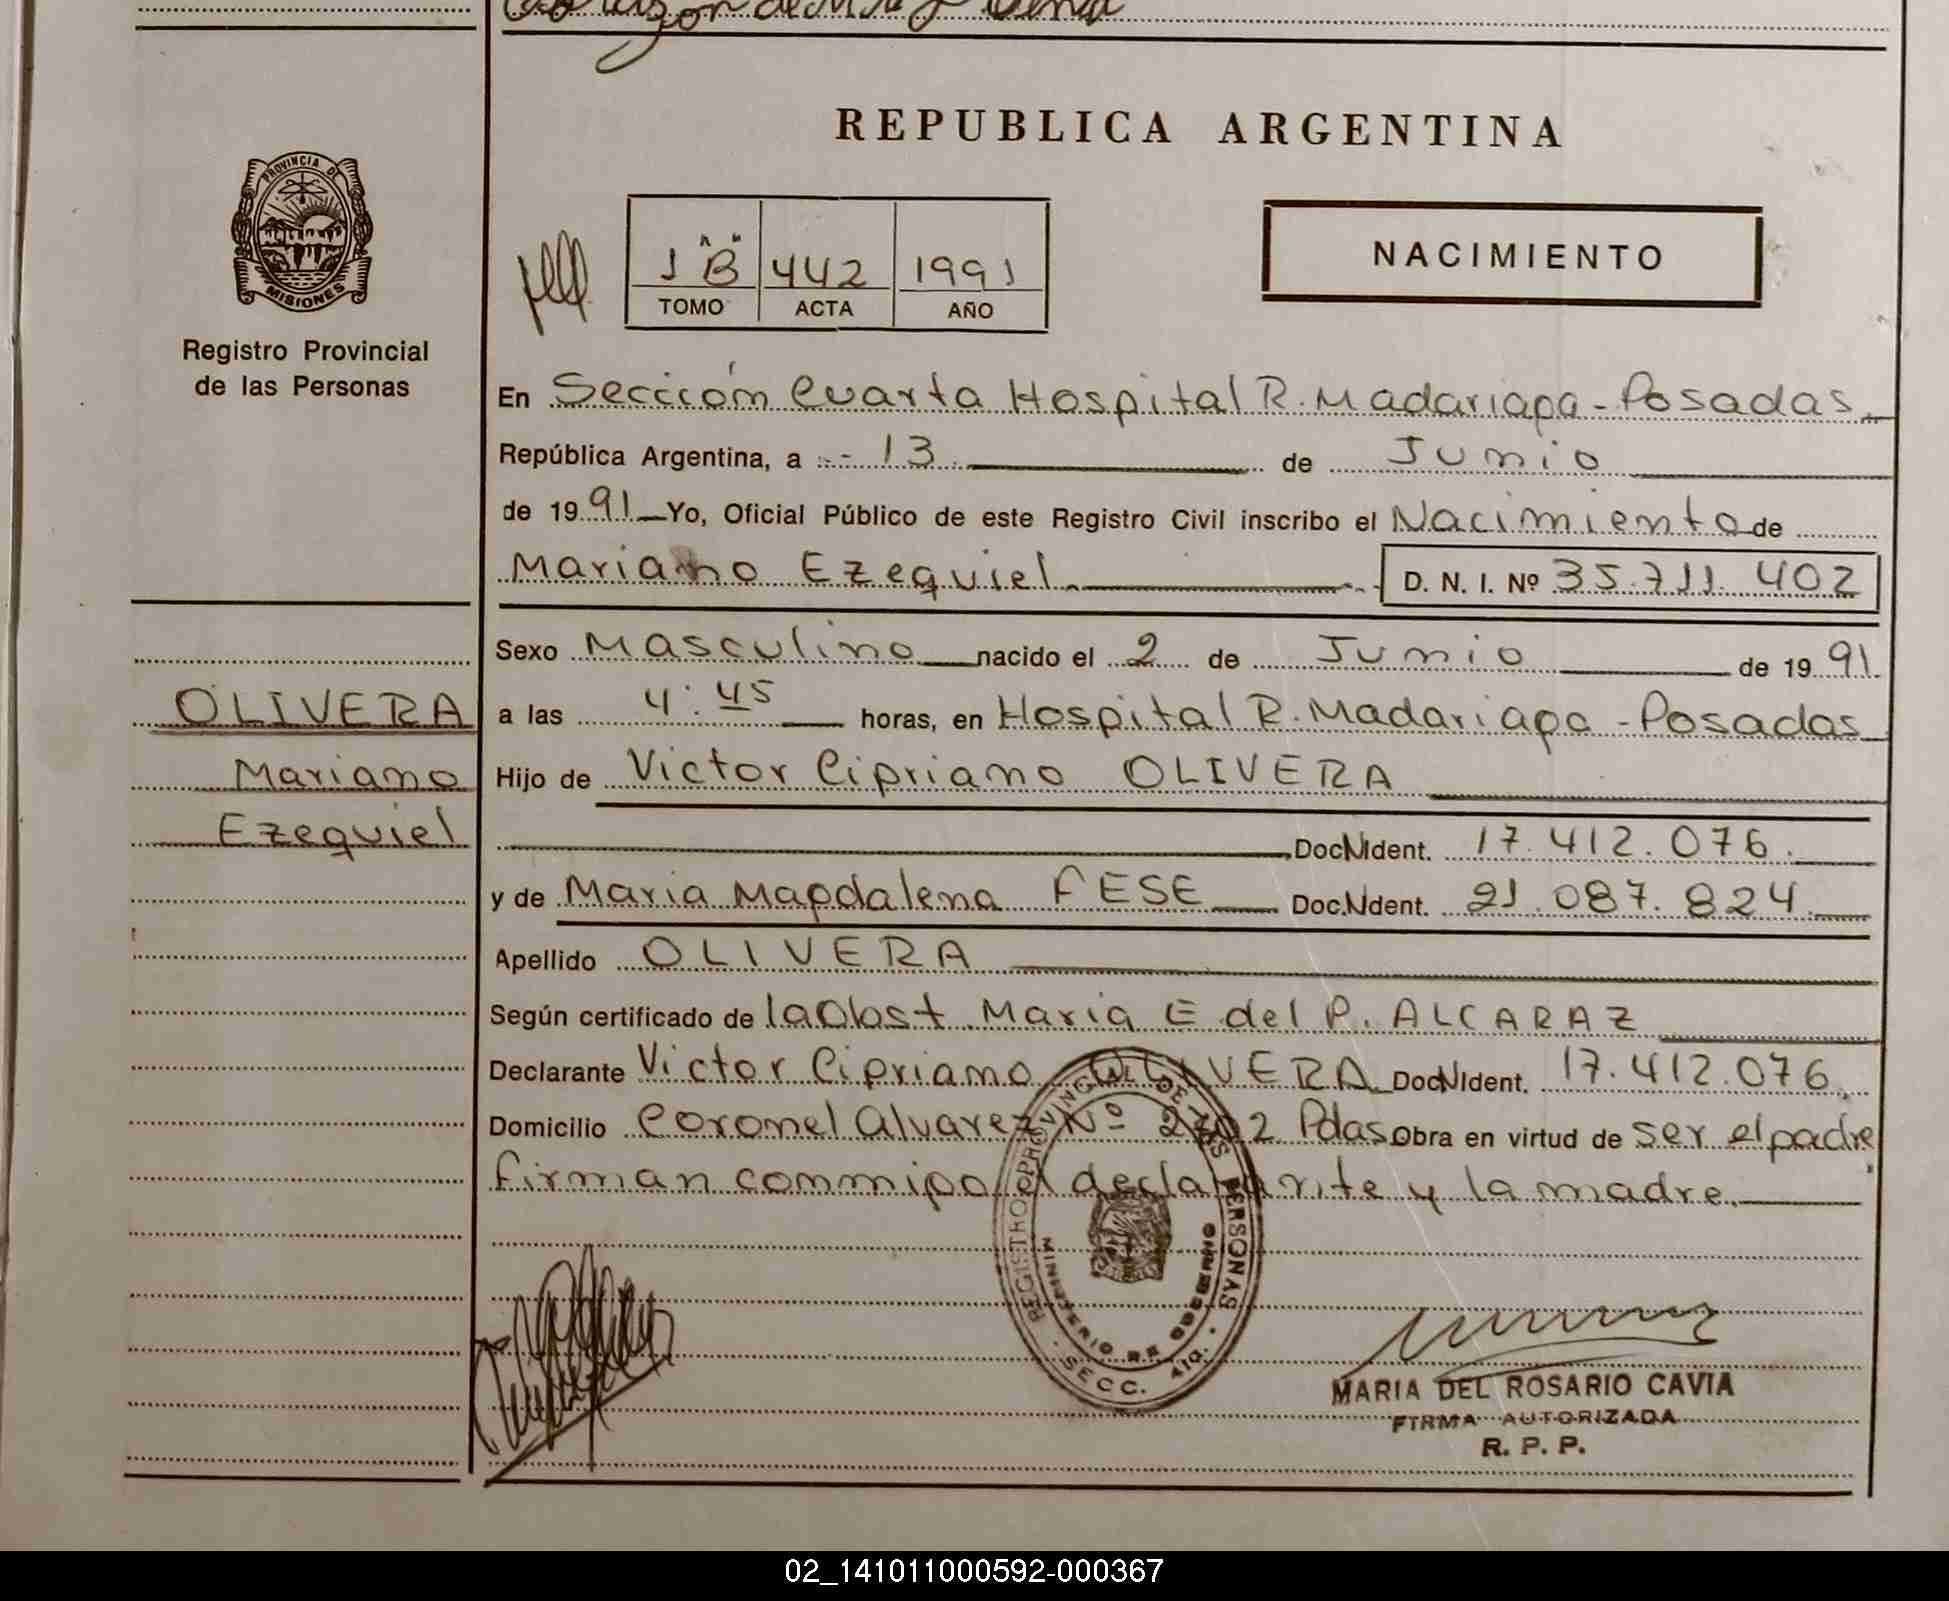 REPUBLICA ARGENTINA
PROVINCIA DE
MISIONES
Registro Provincial
de las Personas
1 "B" 442 1991
TOMO ACTA AÑO
NACIMIENTO
En Sección Cuarta Hospital R. Madariaga - Posadas
República Argentina, a -- 13 de Junio
de 1991 Yo, Oficial Público de este Registro Civil inscribo el Nacimiento de
Mariano Ezequiel D. N. I. Nº 35.711.402
Sexo Masculino nacido el 2 de Junio de 1991
OLIVERA
Mariano
Ezequiel
a las 4:45 horas, en Hospital R. Madariaga - Posadas
Hijo de Victor Cipriano OLIVERA
Doc.N.Ident. 17.412.076.
y de Maria Magdalena FESE Doc.N.Ident. 21.087.824
Apellido OLIVERA
Según certificado de la Obst. Maria E del P. ALCARAZ
Declarante Victor Cipriano OLIVERA Doc.N.Ident. 17.412.076
Domicilio Coronel Alvarez Nº 2702 Pdas Obra en virtud de ser el padre
firman conmigo el declarante y la madre.
REGISTRO PROVINCIAL DE LAS PERSONAS
MINISTERIO DE GOBIERNO
SECC. 4ta.
MARIA DEL ROSARIO CAVIA
FIRMA AUTORIZADA
R. P. P.
02_141011000592-000367